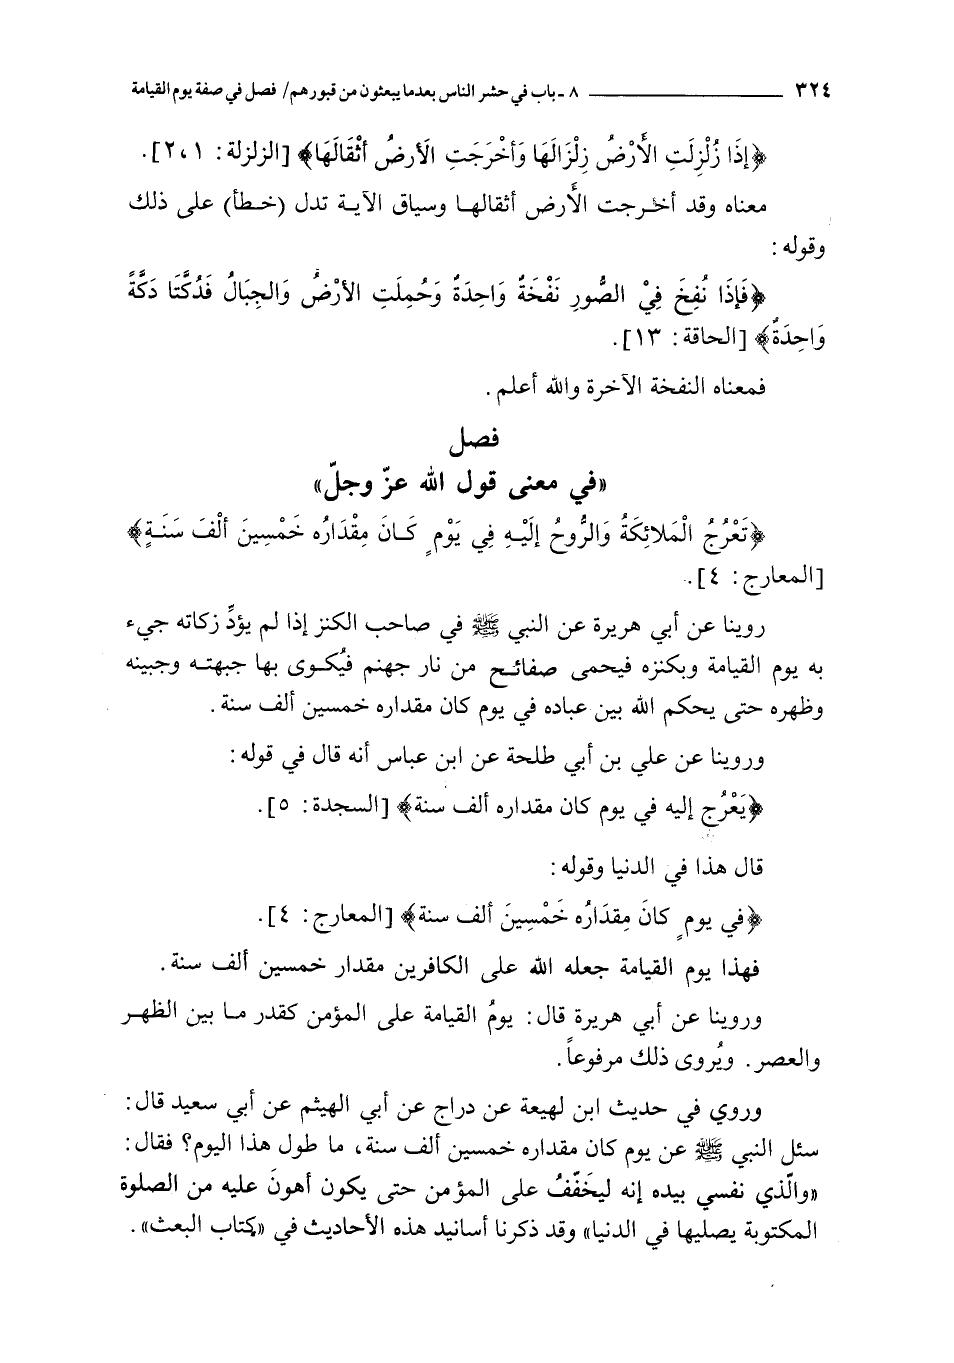 ٣٢٤ ــــــــــــــــ ٨ - باب في حشر الناس بعدما يبعثون من قبورهم/ فصل في صفة يوم القيامة
﴿إذَا زُلْزِلَتِ الأَرْضُ زِلْزَالَهَا وَأخْرَجَتِ الأرضُ أثْقَالَهَا﴾ [الزلزلة: ١، ٢].
معناه وقد أخرجت الأرض أثقالها وسياق الآية تدل (خطأ) على ذلك
وقوله:
﴿فَإذَا نُفِخَ فِيْ الصُّورِ نَفْخَةٌ وَاحِدَةٌ وَحُمِلَتِ الأرْضُ وَالجِبَالُ فَدُكَّتَا دَكَّةً
وَاحِدَةٌ﴾ [الحاقة: ١٣].
فمعناه النفخة الآخرة والله أعلم.
فصل
«في معنى قول الله عزّ وجلّ»
﴿تَعْرُجُ الْمَلائِكَةُ وَالرُّوحُ إلَيْهِ فِي يَوْمٍ كَانَ مِقْدَارُه خَمْسِينَ ألْفَ سَنَةٍ﴾
[المعارج: ٤].
روينا عن أبي هريرة عن النبي ﷺ في صاحب الكنز إذا لم يؤدِّ زكاته جيء
به يوم القيامة وبكنزه فيحمى صفائح من نار جهنم فيُكوى بها جبهته وجبينه
وظهره حتى يحكم الله بين عباده في يوم كان مقداره خمسين ألف سنة.
وروينا عن علي بن أبي طلحة عن ابن عباس أنه قال في قوله:
﴿يَعْرُج إليه في يوم كان مقداره ألف سنة﴾ [السجدة: ٥].
قال هذا في الدنيا وقوله:
﴿في يومٍ كانَ مِقدَارُه خَمْسِينَ ألف سنة﴾ [المعارج: ٤].
فهذا يوم القيامة جعله الله على الكافرين مقدار خمسين ألف سنة.
وروينا عن أبي هريرة قال: يومُ القيامة على المؤمن كقدر ما بين الظهر
والعصر. ويُروى ذلك مرفوعاً.
وروي في حديث ابن لهيعة عن دراج عن أبي الهيثم عن أبي سعيد قال:
سئل النبي ﷺ عن يوم كان مقداره خمسين ألف سنة، ما طول هذا اليوم؟ فقال:
«والّذي نفسي بيده إنه ليخَفّفُ على المؤمن حتى يكون أهونَ عليه من الصلوة
المكتوبة يصليها في الدنيا» وقد ذكرنا أسانيد هذه الأحاديث في «كتاب البعث».